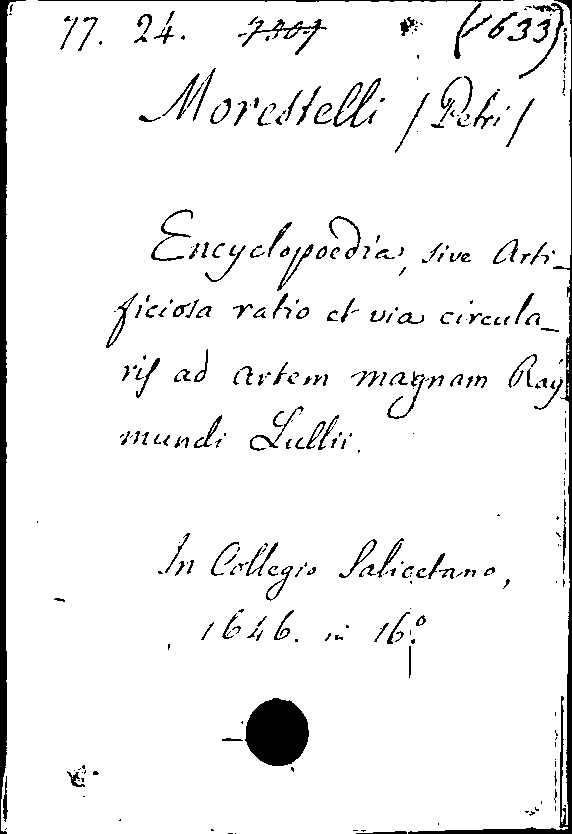 77. 24. 7307 (1633)
Morestelli /Petri/
Encyclopoedia, sive Arti-
ficiosa ratio et via circula-
ris ad artem magnam Raÿ-
mundi Lullii.
In Collegio Salicetano,
1646. in 16.º